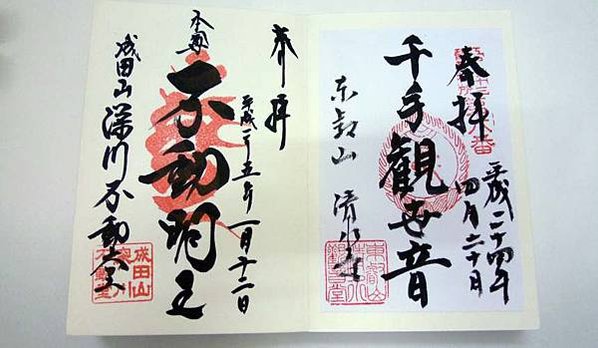 奉拝
平成二十四年
四月二十日
千手観世音
東叡山 清水堂
奉拝
平成二十五年一月十二日
本尊
不動明王
成田山深川不動堂
成田山